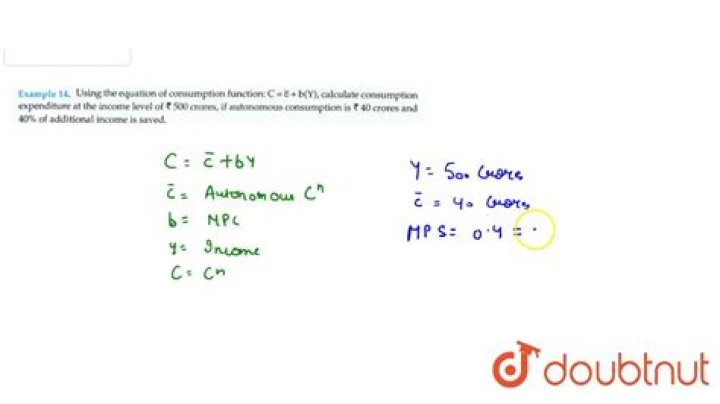 Example 14. Using the equation of consumption function: C = c̄ + b(Y), calculate consumption
expenditure at the income level of ₹ 500 crores, if autonomous consumption is ₹ 40 crores and
40% of additional income is saved.
C = c̄ + bY
c̄ = Autonomous Cⁿ
b = MPC
Y = Income
C = Cⁿ
Y = 500 Crores
c̄ = 40 Crores
MPS = 0.4 =
doubtnut